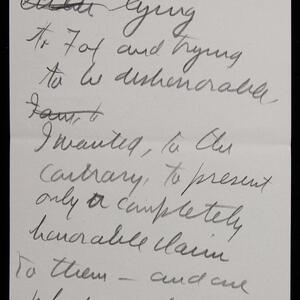 lying
to Fox and trying
to be dishonorable,
I am, to
I wanted, to the
contrary, to present
only a completely
honorable claim
to them — and one